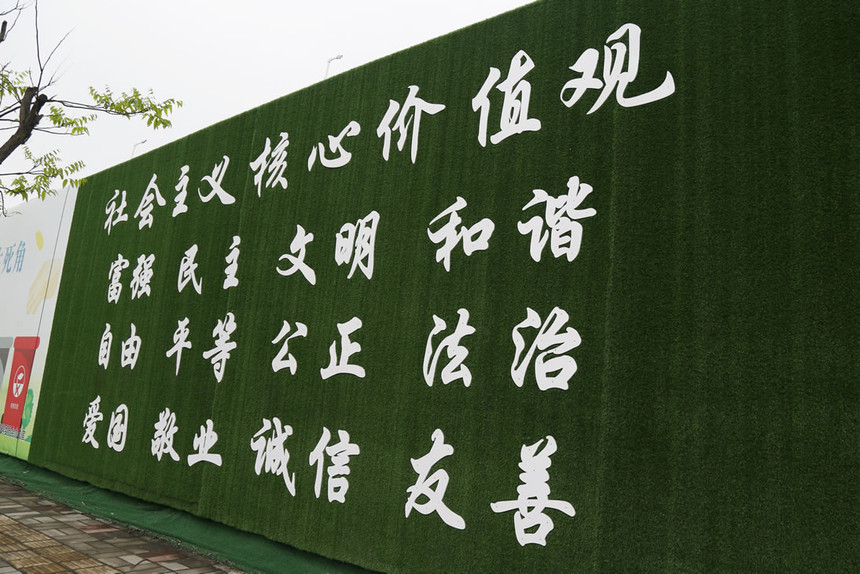 社会主义核心价值观
富强 民主 文明 和谐
自由 平等 公正 法治
爱国 敬业 诚信 友善
死角